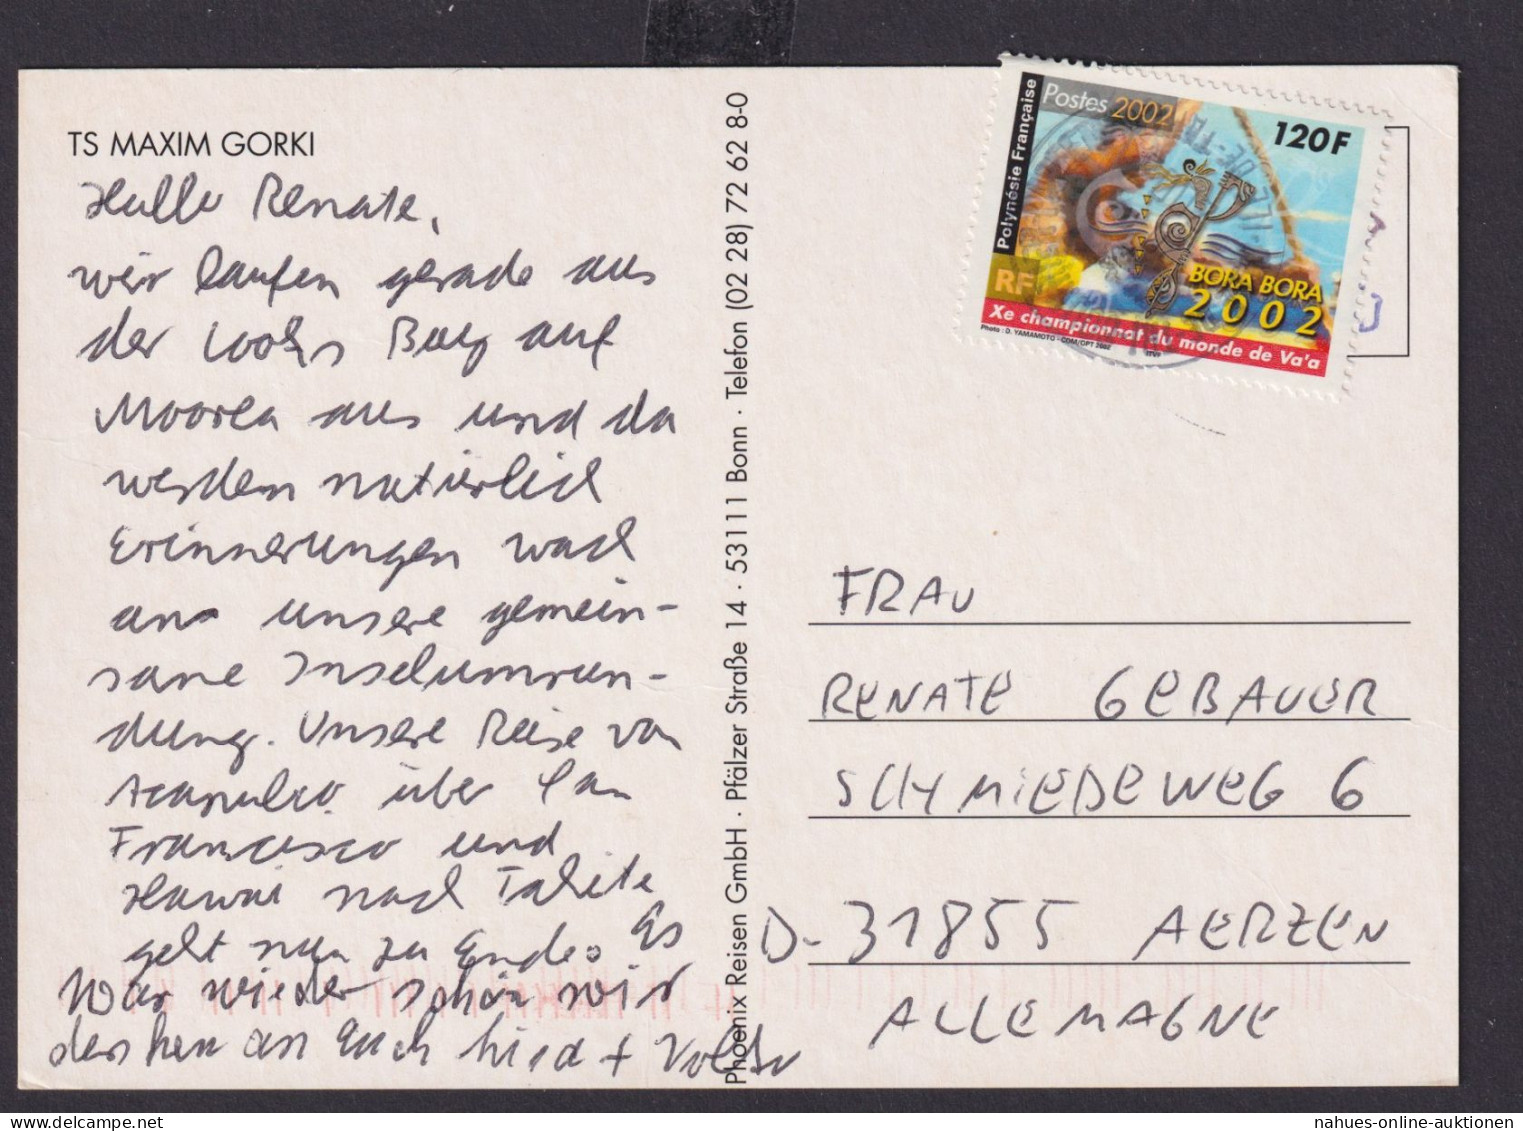 TS MAXIM GORKI
Hallo Renate,
wir laufen gerade aus
der Cooks Bay auf
Moorea aus und da
werden natürlich
Erinnerungen wach
an unsere gemein-
same Inselumrun-
dung. Unsere Reise von
Acapulco über San
Francisco und
Hawai nach Tahiti
geht nun zu Ende. Es
war wieder schön wir
denken an Euch +
Phoenix Reisen GmbH · Pfälzer Straße 14 · 53111 Bonn · Telefon (02 28) 72 62 8-0
Polynésie Française
Postes 2002
120F
RF
BORA BORA
2002
Xe championnat du monde de Va'a
Photo : D. YAMAMOTO - COM/OPT 2002
ITVF
FRAU
RENATE GEBAUER
SCHMIEDEWEG 6
D-31855 AERZEN
ALLEMAGNE
nahues-online-auktionen